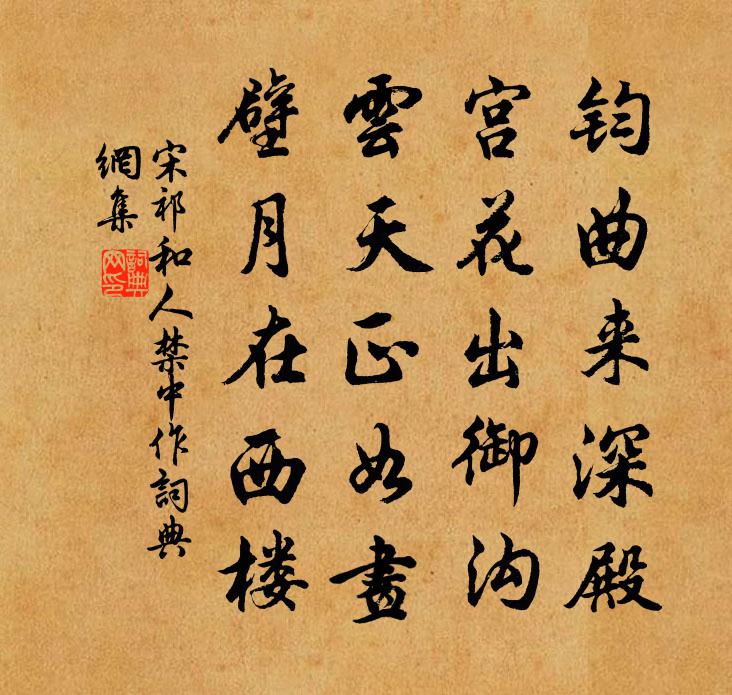 钧曲来深殿
宫花出御沟
雲天正如畫
壁月在西楼
宋祁和人禁中作詞典
網集
詞典
网印